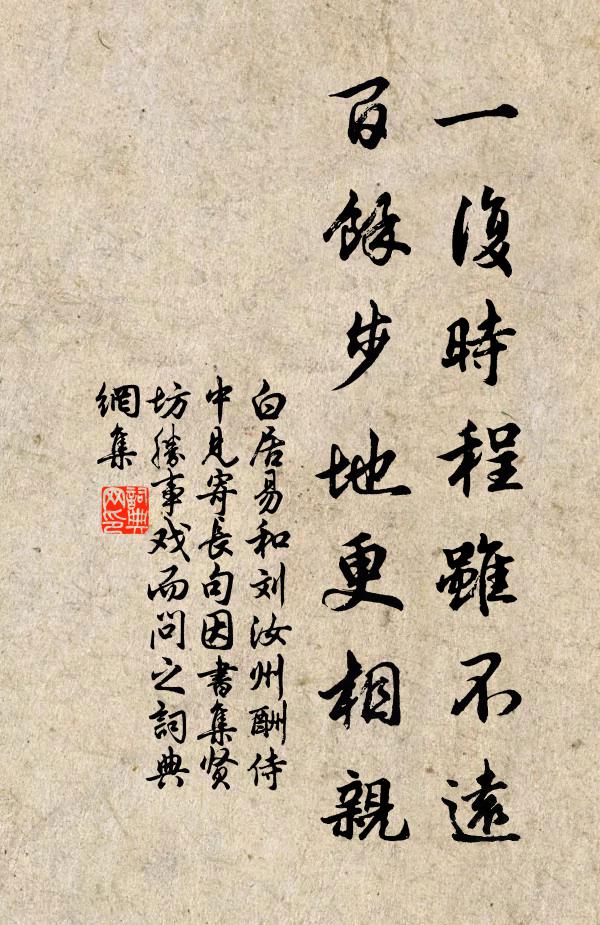 一復時程雖不遠
百餘步地更相親
白居易和刘汝州酬侍
中見寄長句因書集贤
坊勝事戏而問之詞典
網集
詞典
网印